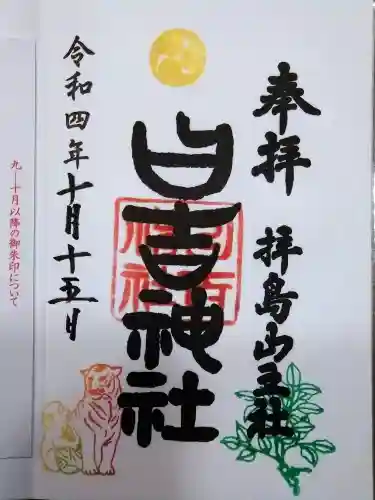 奉拝 拝島山王社
日吉神社
令和四年十月十五日
九―十月以降の御朱印について